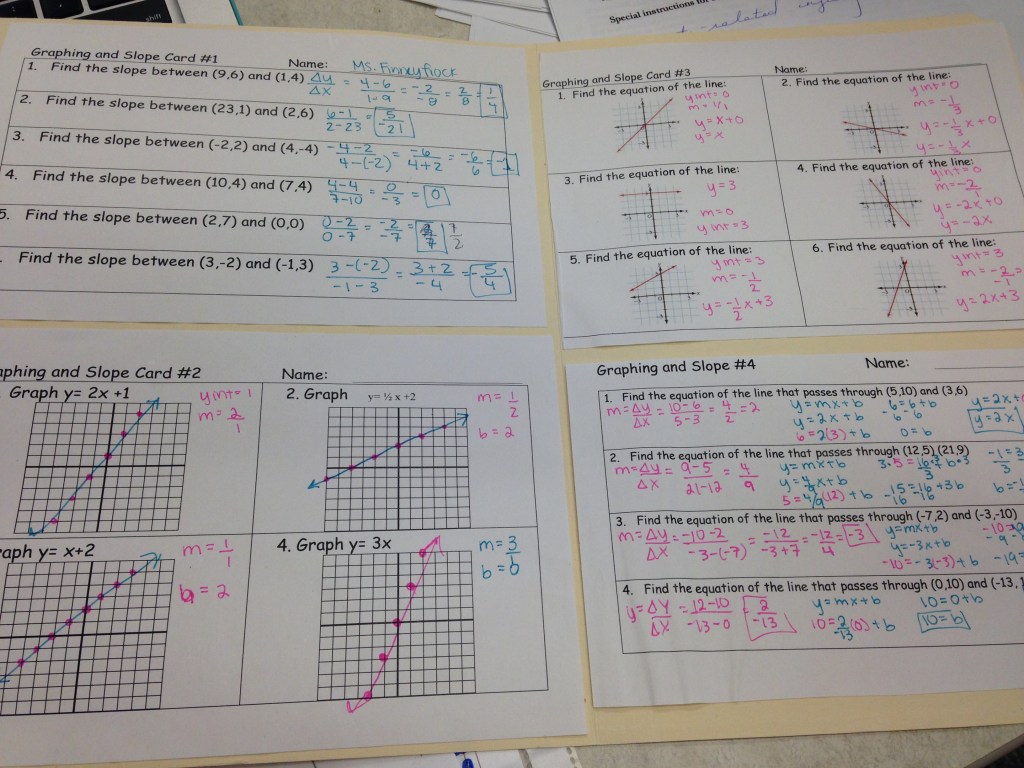 shift
Special instructions for
Graphing and Slope Card #1
Name: Ms. Finneyfrock
1. Find the slope between (9,6) and (1,4) Δy/Δx = 4-6/1-9 = -2/-8 = 2/8 = 1/4
2. Find the slope between (23,1) and (2,6) 6-1/2-23 = 5/-21
3. Find the slope between (-2,2) and (4,-4) -4-2/4-(-2) = -6/4+2 = -6/6 = -1
4. Find the slope between (10,4) and (7,4) 4-4/7-10 = 0/-3 = 0
5. Find the slope between (2,7) and (0,0) 0-2/0-7 = -2/-7 = 7/2
Find the slope between (3,-2) and (-1,3) 3-(-2)/-1-3 = 3+2/-4 = -5/4
Graphing and Slope Card #3
Name:
1. Find the equation of the line:
y int = 0
m = 1/1
y = x+0
y = x
2. Find the equation of the line:
y int = 0
m = -1/3
y = -1/3 x + 0
y = -1/3 x
3. Find the equation of the line:
y = 3
m = 0
y int = 3
4. Find the equation of the line:
y int = 0
m = -2/1
y = -2x + 0
y = -2x
5. Find the equation of the line:
y int = 3
m = -1/2
y = -1/2 x + 3
6. Find the equation of the line:
y int = 3
m = -2/-1 =
y = 2x+3
aphing and Slope Card #2
Name:
Graph y= 2x +1
y int = 1
m = 2/1
2. Graph y= ½ x +2
m = 1/2
b = 2
aph y= x+2
m = 1/1
b = 2
4. Graph y= 3x
m = 3/1
b = 0
Graphing and Slope #4
Name:
1. Find the equation of the line that passes through (5,10) and (3,6)
m = Δy/Δx = 10-6/5-3 = 4/2 = 2
y = mx+b
y = 2x+b
6 = 2(3)+b
6 = 6+b
-6 -6
0 = b
y = 2x
2. Find the equation of the line that passes through (12,5) (21,9)
m = Δy/Δx = 9-5/21-12 = 4/9
y = mx+b
y = 4/9 x + b
5 = 4/9 (12) + b
15 = 16 + 3b
-16 -16
3. Find the equation of the line that passes through (-7,2) and (-3,-10)
m = Δy/Δx = -10-2/-3-(-7) = -12/-3+7 = -12/4 = -3
y = mx+b
y = -3x+b
-10 = -3(-3)+b
4. Find the equation of the line that passes through (0,10) and (-13,
y = Δy/Δx = 12-10/-13-0 = 2/-13
y = mx+b
10 = 2/-13 (0) + b
10 = 0+b
10 = b